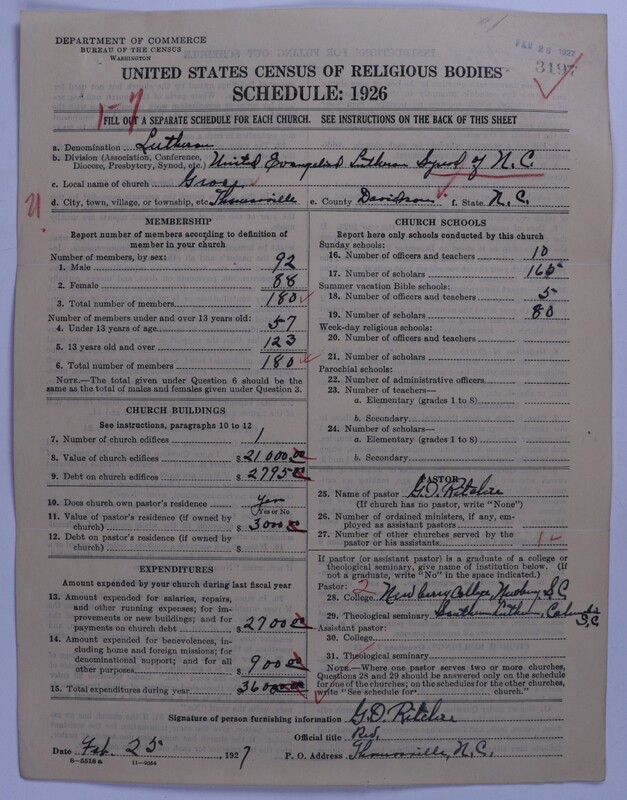 DEPARTMENT OF COMMERCE
BUREAU OF THE CENSUS
WASHINGTON
FEB 28 1927
3197
UNITED STATES CENSUS OF RELIGIOUS BODIES
SCHEDULE: 1926
1-7
FILL OUT A SEPARATE SCHEDULE FOR EACH CHURCH. SEE INSTRUCTIONS ON THE BACK OF THIS SHEET
a. Denomination Lutheran
b. Division (Association, Conference, Diocese, Presbytery, Synod, etc.) United Evangelical Lutheran Synod of N.C.
c. Local name of church Grace
d. City, town, village, or township, etc. Thomasville e. County Davidson f. State N.C.
MEMBERSHIP
Report number of members according to definition of member in your church
Number of members, by sex:
1. Male 92
2. Female 88
3. Total number of members 180
Number of members under and over 13 years old:
4. Under 13 years of age 57
5. 13 years old and over 123
6. Total number of members 180
NOTE.—The total given under Question 6 should be the same as the total of males and females given under Question 3.
CHURCH BUILDINGS
See instructions, paragraphs 10 to 12
7. Number of church edifices 1
8. Value of church edifices $21000.00
9. Debt on church edifices $2795.00
10. Does church own pastor's residence Yes
Yes or No
11. Value of pastor's residence (if owned by church) $3000
12. Debt on pastor's residence (if owned by church) $
EXPENDITURES
Amount expended by your church during last fiscal year
13. Amount expended for salaries, repairs, and other running expenses; for improvements or new buildings; and for payments on church debt $2700.00
14. Amount expended for benevolences, including home and foreign missions; for denominational support; and for all other purposes $900.00
15. Total expenditures during year $3600.00
CHURCH SCHOOLS
Report here only schools conducted by this church
Sunday schools:
16. Number of officers and teachers 10
17. Number of scholars 165
Summer vacation Bible schools:
18. Number of officers and teachers 5
19. Number of scholars 80
Week-day religious schools:
20. Number of officers and teachers
21. Number of scholars
Parochial schools:
22. Number of administrative officers
23. Number of teachers—
a. Elementary (grades 1 to 8)
b. Secondary
24. Number of scholars—
a. Elementary (grades 1 to 8)
b. Secondary $
PASTOR
25. Name of pastor G.O. Ritchie
(If church has no pastor, write "None")
26. Number of ordained ministers, if any, employed as assistant pastors
27. Number of other churches served by the pastor or his assistants 1
If pastor (or assistant pastor) is a graduate of a college or theological seminary, give name of institution below. (If not a graduate, write "No" in the space indicated.)
Pastor: 2
28. College Newberry College, Newberry, S.C.
29. Theological seminary Southern Luthern, Columbia S.C.
Assistant pastor:
30. College
31. Theological seminary
NOTE.—Where one pastor serves two or more churches, Questions 28 and 29 should be answered only on the schedule for one of the churches; on the schedules for the other churches, write "See schedule for church."
Signature of person furnishing information G.O. Ritchie
Official title Rev.
Date Feb. 25, 1927 P. O. Address Thomasville, N.C.
8—5518 a 11—9584